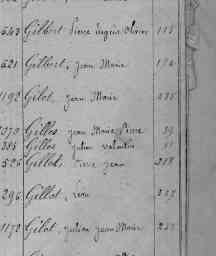 543 Gilbert Pierre Eugène Olivier 155
521 Gilbert, Jean Marie 176
1192 Gilot, Jean Marie
1070 Gilles Jean Marie Pierre 39
385 Gilles Julien Valentin 51
525 Gillot, Pierre Jean 218
296 Gillot, Léon 257
1172 Gilot, Julien Jean Marie